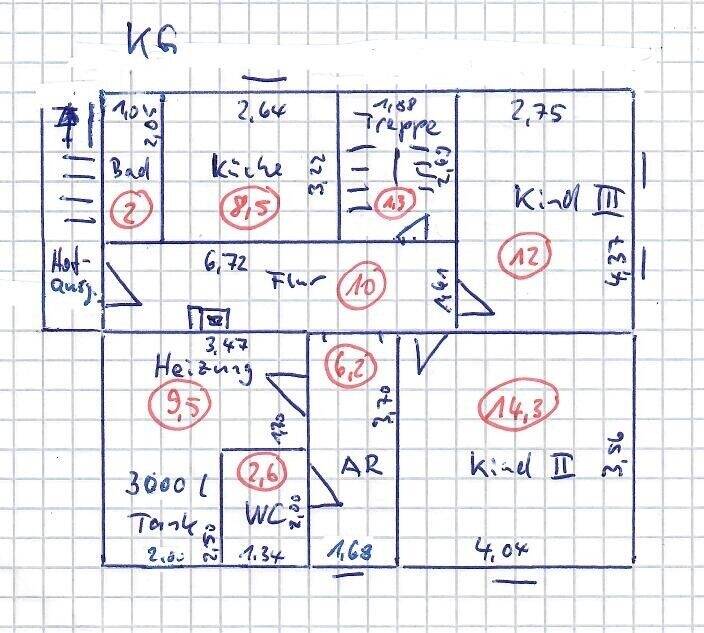 KG
1,05
2,05
Bad
2
2,64
Küche
3,22
8,5
1,88
Treppe
2,69
1,3
2,75
Kind III
12
4,37
Hof-
ausg.
6,72
Flur
10
1,61
3,47
Heizung
9,5
1,70
6,2
3,70
14,3
3,56
3000 l
Tank
2,6
WC
2,00
AR
Kind II
2,50
1,34
1,68
4,04